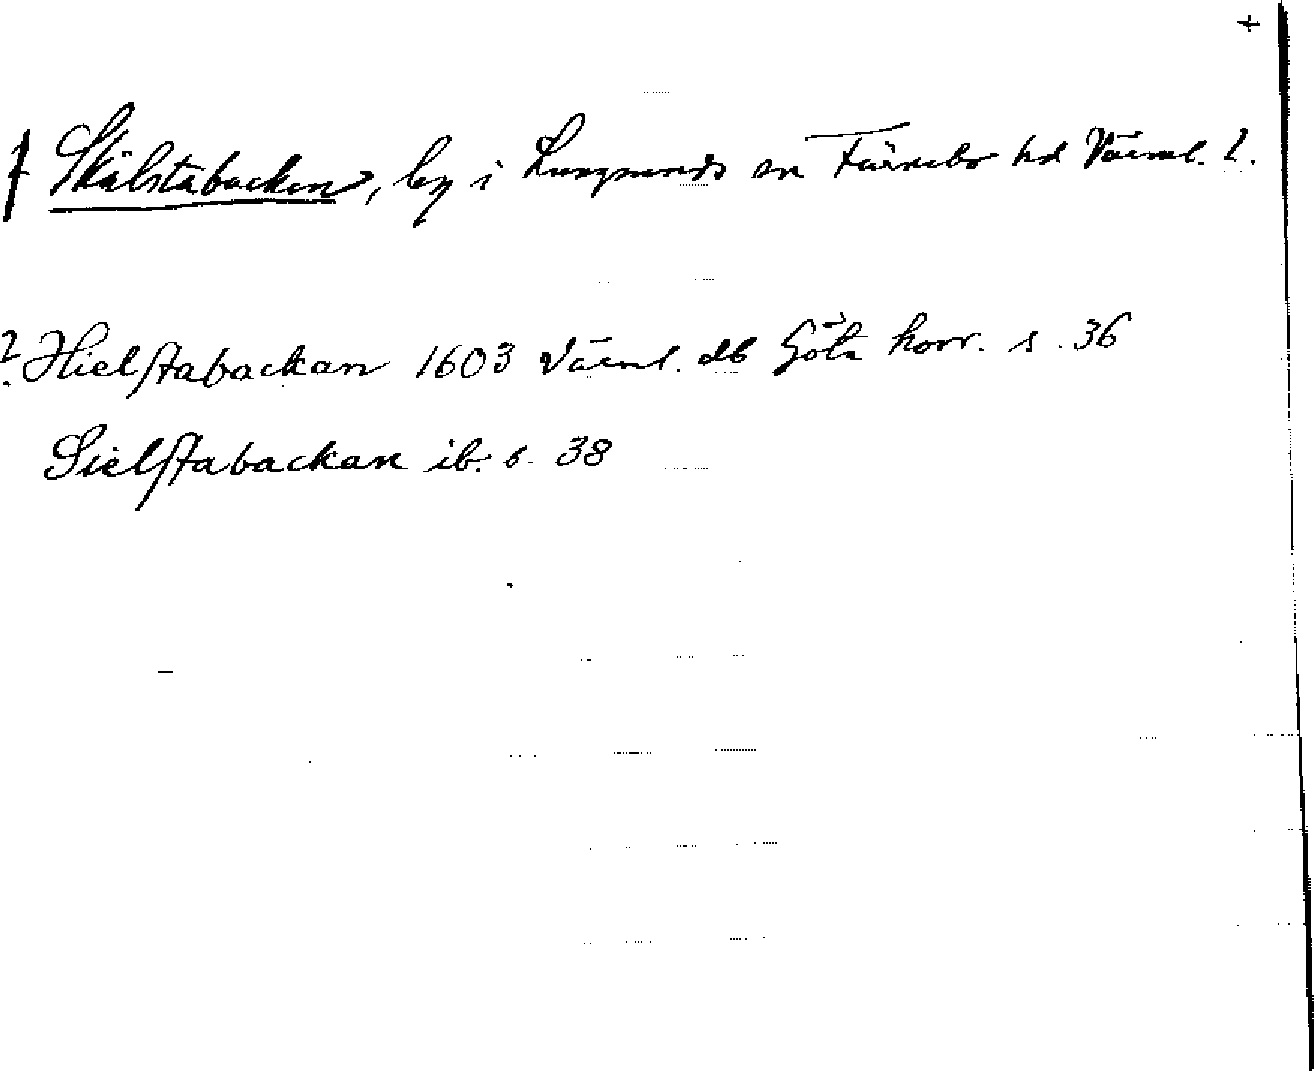 +
† Skälstabacken, by i Lungsunds sn Färnebo hd Värml. l.
? Hielstabackan 1603 Värml. db Göta hovr. s. 36
Sielstabackan ib. s. 38